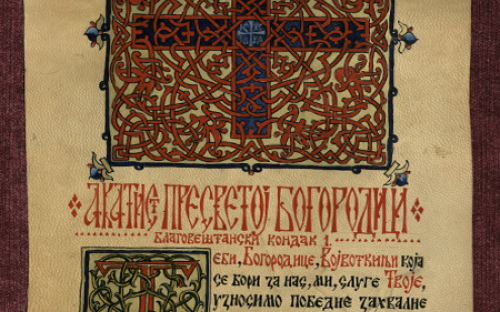 АКАТИСТ ПРЕСВЕТОЈ БОГОРОДИЦИ
БЛАГОВЕШТАНСКИ КОНДАК 1.
ТЕБИ, БОГОРОДИЦЕ, ВОЈВОТКИЊИ КОЈА
СЕ БОРИ ЗА НАС, МИ, СЛУГЕ ТВОЈЕ,
УЗНОСИМО ПОБЕДНЕ ЗАХВАЛНЕ